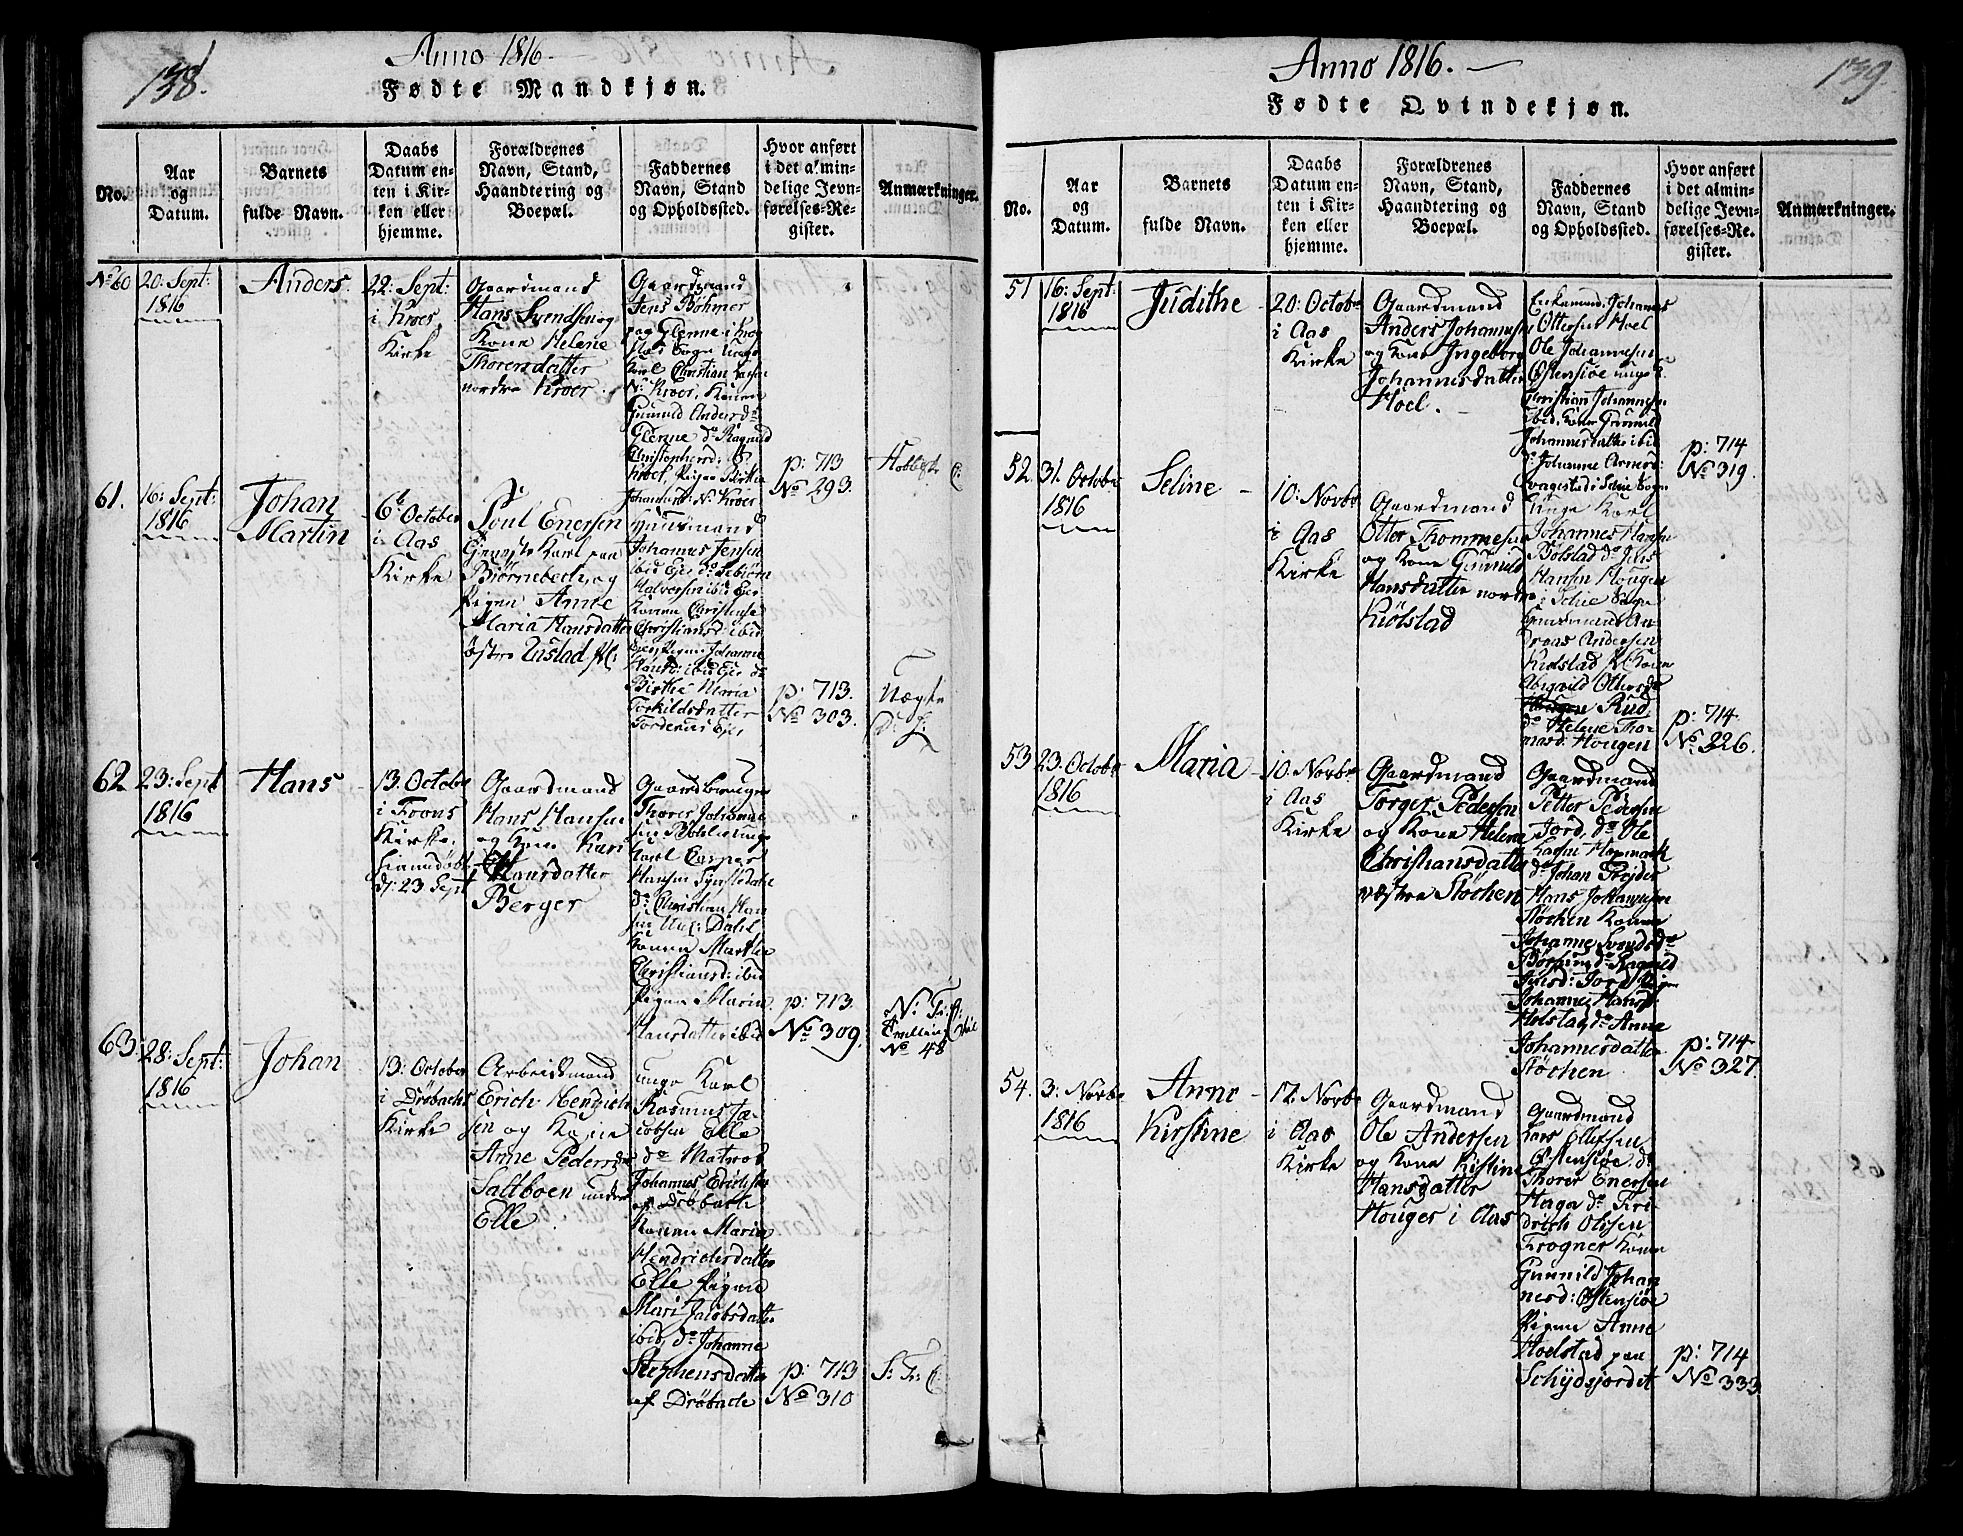 138.
Anno 1816
Fødte Mandkjøn.
No.
Aar
og
Datum.
Barnets
fulde Navn.
Daabs
Datum en-
ten i Kir-
ken eller
hjemme.
Forældrenes
Navn, Stand,
Haandtering og
Boepæl.
Faddernes
Navn, Stand
og Opholdssted.
Hvor anført
i det almin-
delige Jevn-
førelses-Re-
gister.
Anmærkninger.
No 60
20: Sept:
1816
Anders
22: Sept:
i Kroer
Kirke
Gaardmand
Hans Svendsen og
Kone Helene
Thorersdatter
nordre Kroer
Gaardmand
Jens Böhmer
Christian
Gunnild Andersd:
Glenne do Ragnild
Christophersd:
Kroer, Pigen Birthe
p: 713
No 293.
61.
16: Sept:
1816
Johan
Martin
6te October
i Aas
Kirke
Poul Enersen
Bjørnebech, og
Pigen Anne
Maria Hansdatter
østre
Huusmand
Johannes Jensen
ibid
Halvorsen ibid
Konen Christense
Christiansd: ibid
Birthe Maria
Torkildsdatter
p: 713.
No 303.
Uægte
62
23: Sept
1816
Hans
13. October
i Froens
Kirke.
hiemdøbt
d: 23 Sept
Gaardmand
Hans Hansen
og Kone Kari
Hansdatter
Berger
Gaardbruger
Thorer Johanne
Karl Casper
Hansen
do Christian Han
sen Dahl
Konen Marthe
Christiansd: ibid
Pigen Maria
Hansdatter ibid
p: 713.
No 309.
No 48
63.
28: Sept:
1816
Johan
13: October
i Drøbachs
Kirke
Arbeidsmand
Erich Hendrich
sen og Kone
Anne Pedersd
Saltboen under
Elle
unge Karl
Rasmus Ja-
cobsen Elle
do Matros
Johannes Erichsen
af Drøbach
Konen Maria
Hendrichsdatter
Elle Pigen
Mari Jacobsdatter
ibid, do Johanne
Stephensdatter
af Drøbach
p: 713
No 310
Anno 1816.
139.
Fødte Qvindekjøn.
No.
Aar
og
Datum.
Barnets
fulde Navn.
Daabs
Datum en-
ten i Kir-
ken eller
hjemme.
Forældrenes
Navn, Stand,
Haandtering og
Boepæl.
Faddernes
Navn, Stand
og Opholdssted.
Hvor anført
i det almin-
delige Jevn-
førelses-Re-
gister.
Anmærkninger.
51
16: Sept:
1816
Judithe
20: Octobr
i Aas
Kirke
Gaardmand
Anders Johannesen
og Kone Ingeborg
Johannesdatter
Hoel.
Enkemand: Johannes
Ottersen Hoel
Ole Johannesen
Østensiøe unge K.
Christian Johannesen
ibid, Kone Gunnild
Johannesdatter ibid
do Johanne
p: 714
No 319.
52.
31. Octobr
1816
Seline
10: Novbr
i Aas
Kirke
Gaardmand
Otter Thommesen
og Kone Gunnild
Hansdatter nordre
Kiölstad
Unge Karl
Johannes Hansen
Bølstad do Jens
Hansen Hougen
i Schie Sogn
Gaardmand An-
dreas Andersen
Kiølstad Konen
Otters
Rud
do Helene Tho-
masd: Hougen
p: 714
No 326.
53
23. Octobr
1816
Maria
10. Novbr
i Aas
Kirke
Gaardmand
Torger Pedersen
og Kone Helene
Christiansdatter
vestre Støchen
Gaardmand
Petter Pedersen
Jord, do Ole
Larsen
do Johan
Hans Johannesen
Støchen Konen
Johanne Svendsd
do Ragnild
Jensd: Jord Pigen
Johanne Hansd:
Holstad, do Anne
Johannesdatter
Støchen
p: 714
No 327.
54.
3: Novbr
1816
Anne
Kirstine
17. Novbr
i Aas
Kirke
Gaardmand
Ole Andersen
og Kone Kistine
Hansdatter
Houger i Aas
Gaardmand
Lars Ellefsen
Østensiøe do
Thorer Enersen
Haga do Fri-
drich Olsen
Frogner Konen
Gunnild Johan
nesd: Østensiøe
Pigen Anne
Hoelstad paa
Schydsjordet
p: 714
No 333.